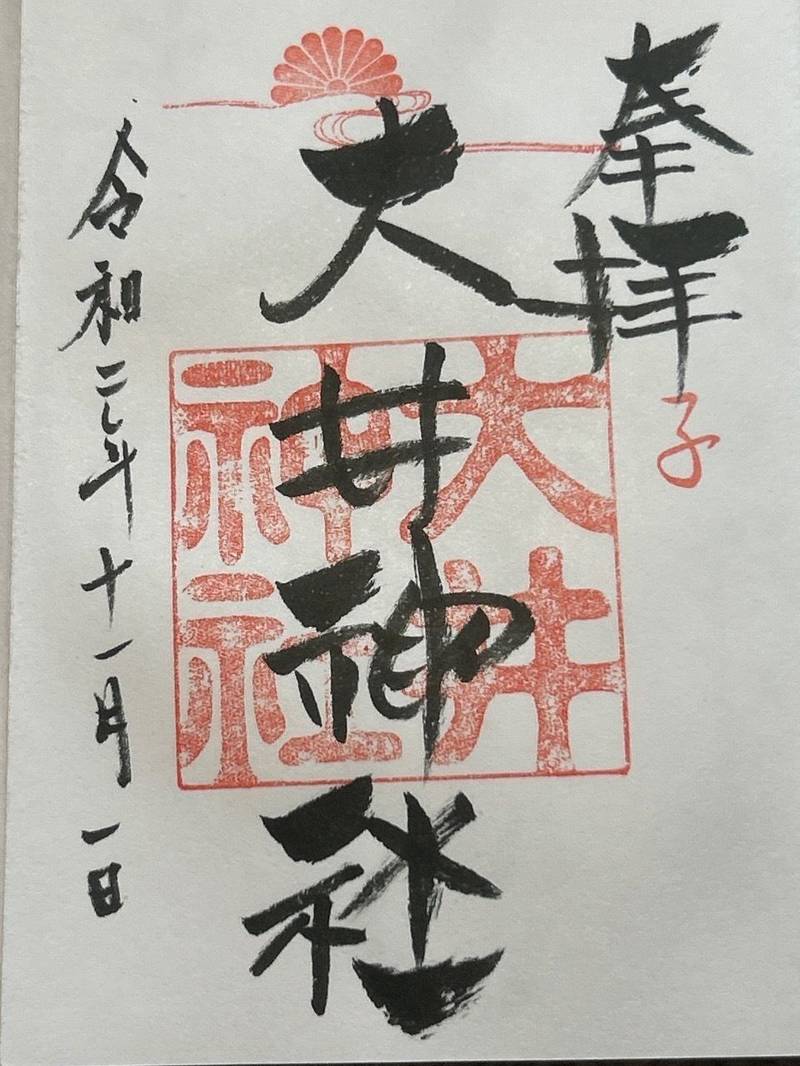 奉拝
子
大井神社
大井
神社
令和二年十一月一日